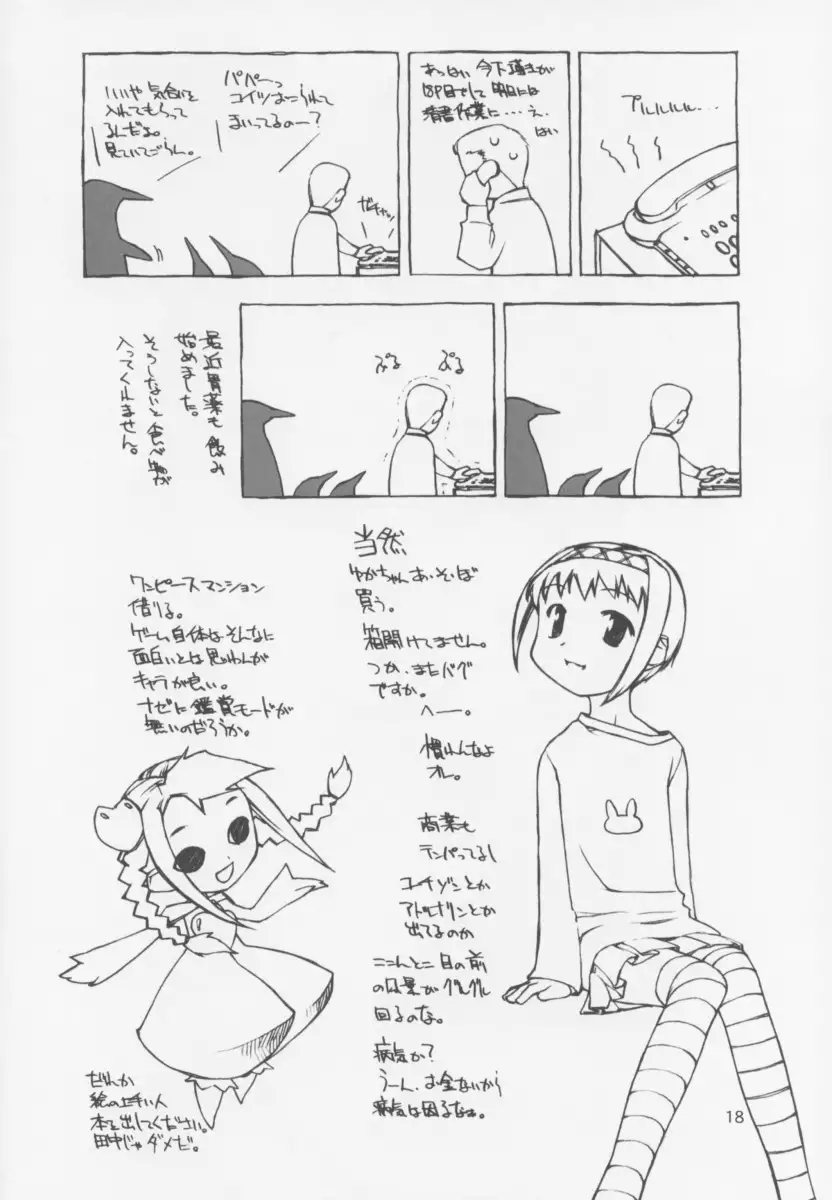 プルルルル…
あっはい 今下描きが
18P目でして 明日には
清書作業に……え、
はい
パペーっ
コイツおこられて
まいってるのー？
いいや 気合いを
入れてもらって
るんだよ。
見ていてごらん。
ガチャッ
ぷる
ぷる
最近胃薬も飲み
始めました。
そうしないと食べ物が
入ってくれません。
当然
ゆかちゃんあ、そぼ
買う。
箱開けてません。
つか、またバグ
ですか。
へー。
慣れんなよ
オレ。
商業も
テンパってるし
コーチゾンとか
アドレナリンとか
出てるのか
ここんとこ目の前
の風景がグルグル
回るのな。
病気か？
うーん、お金ないから
病気は困るなぁ。
ワンピースマンション
借りる。
ゲーム自体はそんなに
面白いとは思わんが
キャラが良い。
ナゼに鑑賞モードが
無いのだろうか。
だれか
絵の上手い人
本を出してください。
田中じゃダメだ。
18